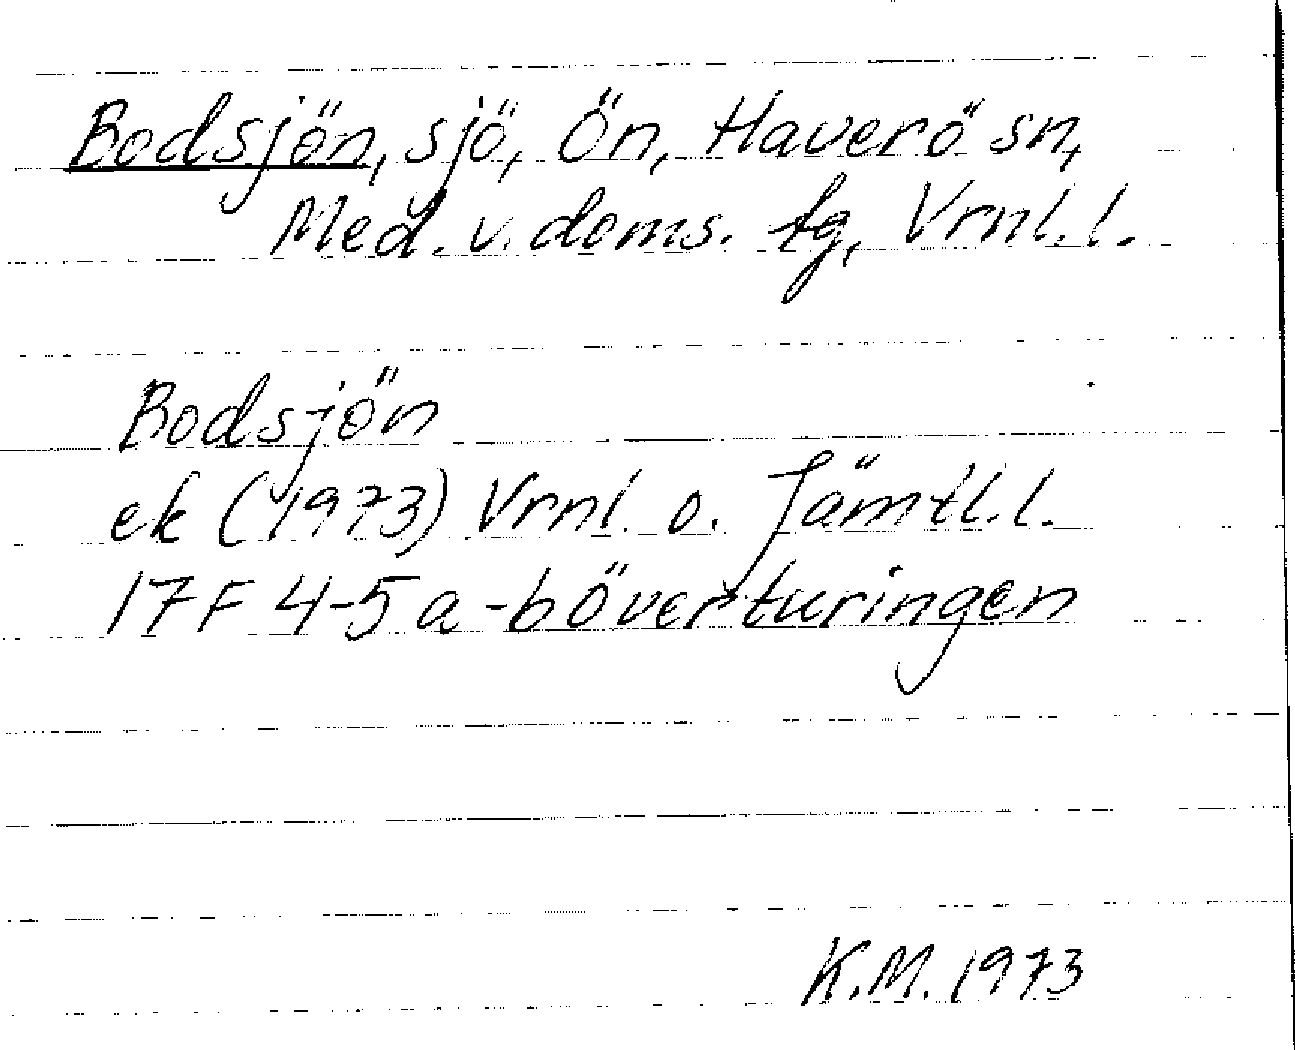 Bodsjön, sjö, Ön, Haverö sn,
Med. v. doms. tg, Vrnl. l.
Bodsjön
ek (1973) Vrnl. o. Jämtl. l.
17F 4-5 a-b överturingen
K.M. 1973